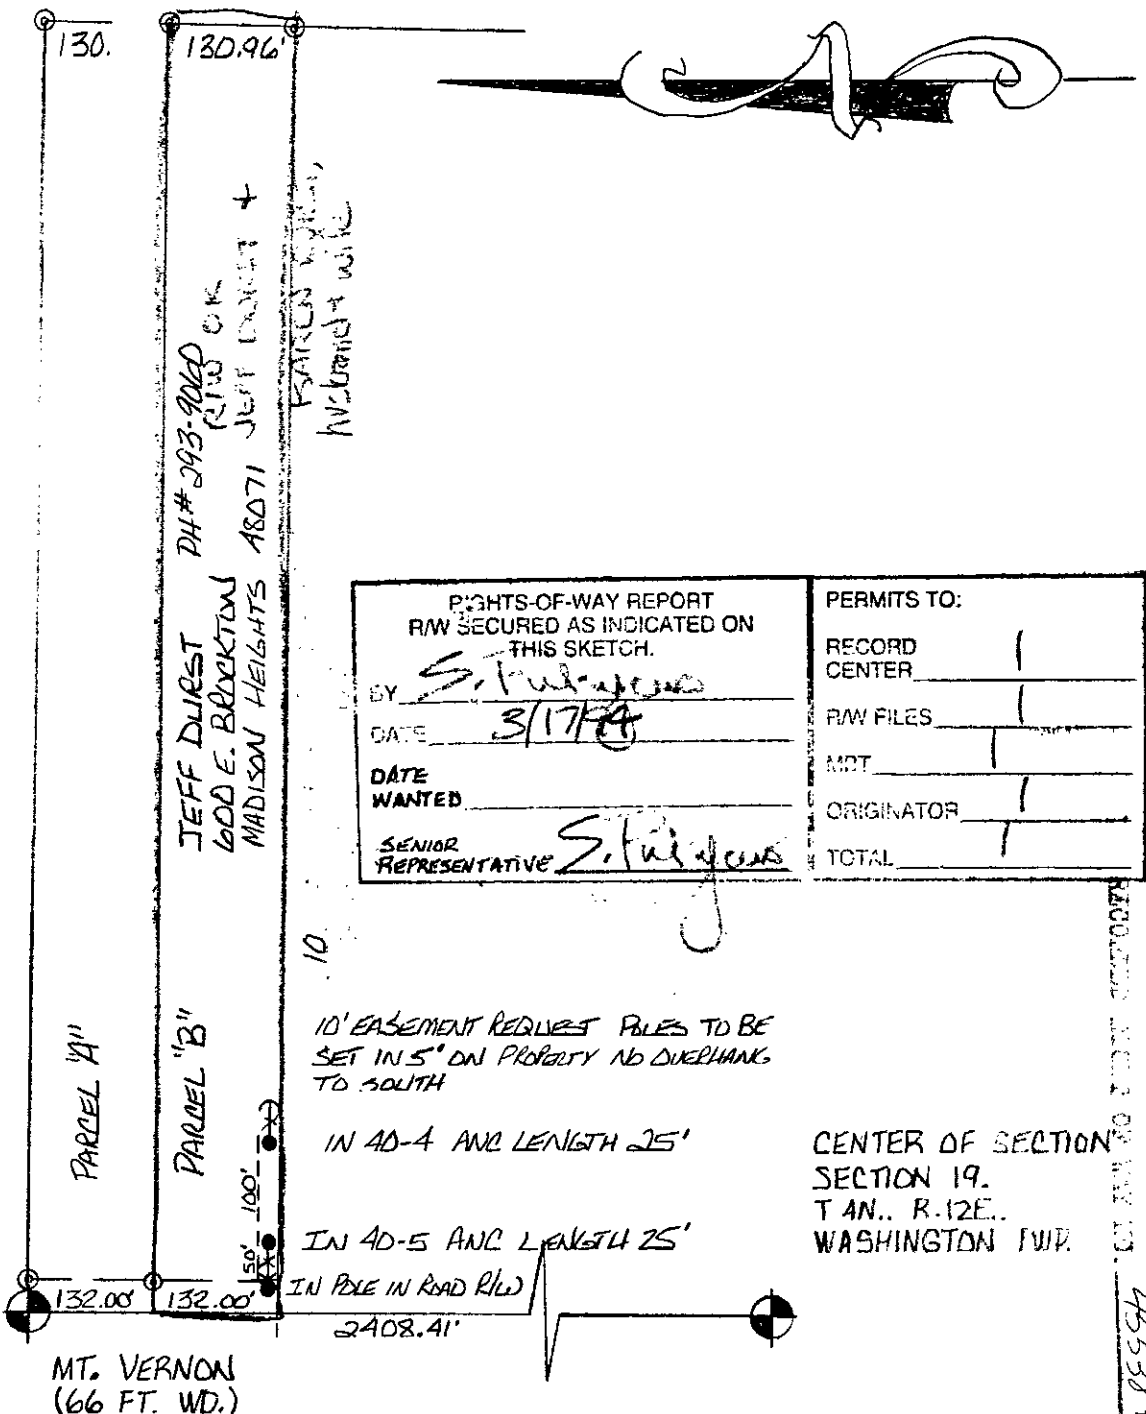 130.
130.96'
N
JEFF DURST PH# 293-9060
600 E. BROCKTON
MADISON HEIGHTS 48071
R/W OK
JEFF DURST +
KAREN
husband & wife
RIGHTS-OF-WAY REPORT
R/W SECURED AS INDICATED ON
THIS SKETCH.
BY S.
DATE 3/17/94
DATE
WANTED
SENIOR
REPRESENTATIVE S.
PERMITS TO:
RECORD
CENTER 1
R/W FILES 1
MDT 1
ORIGINATOR 1
TOTAL 1
10
10' EASEMENT REQUEST POLES TO BE
SET IN 5' ON PROPERTY NO OVERHANG
TO SOUTH
PARCEL "A"
PARCEL "B"
IN 40-4 ANC LENGTH 25'
100'
IN 40-5 ANC LENGTH 25'
50'
IN POLE IN ROAD R/W
CENTER OF SECTION
SECTION 19.
T 4N.. R.12E..
WASHINGTON TWP.
132.00'
132.00'
2408.41'
MT. VERNON
(66 FT. WD.)